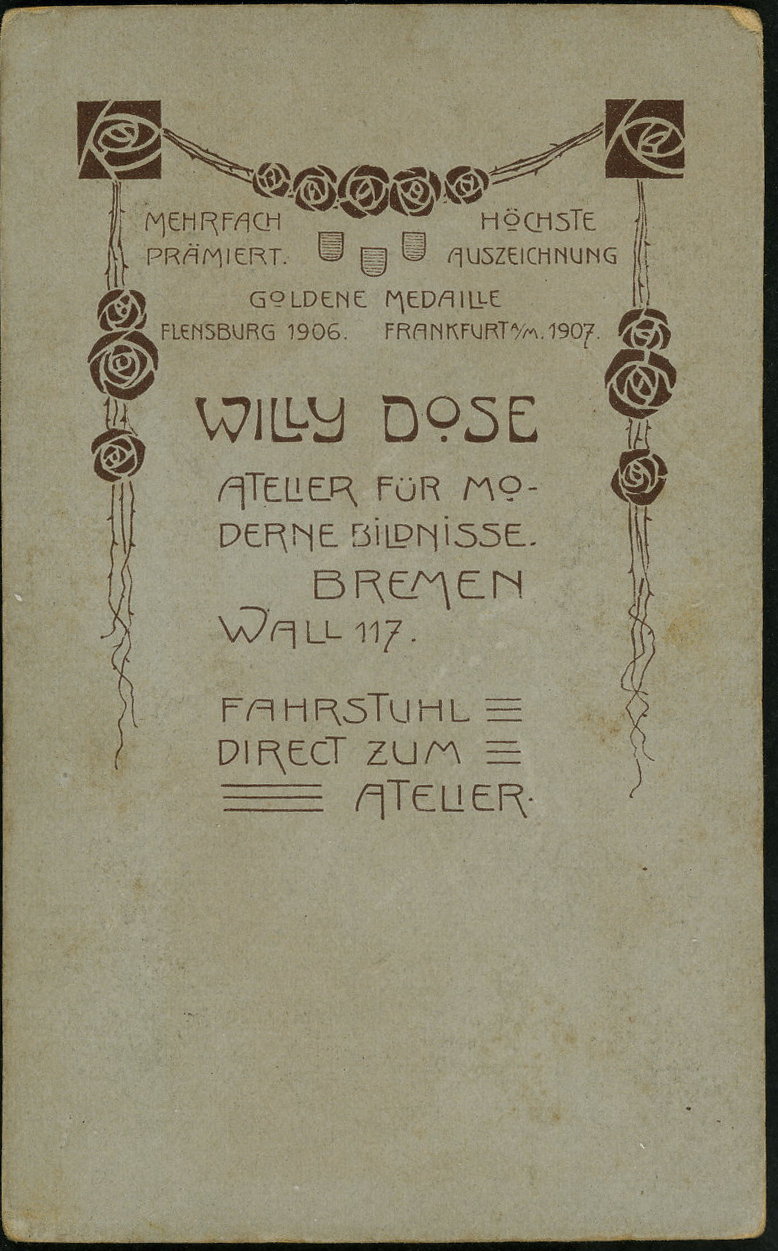 MEHRFACH HÖCHSTE
PRÄMIERT. AUSZEICHNUNG
GOLDENE MEDAILLE
FLENSBURG 1906. FRANKFURT A/M. 1907.
WILLY DOSE
ATELIER FÜR MO-
DERNE BILDNISSE.
BREMEN
WALL 117.
FAHRSTUHL
DIRECT ZUM
ATELIER.